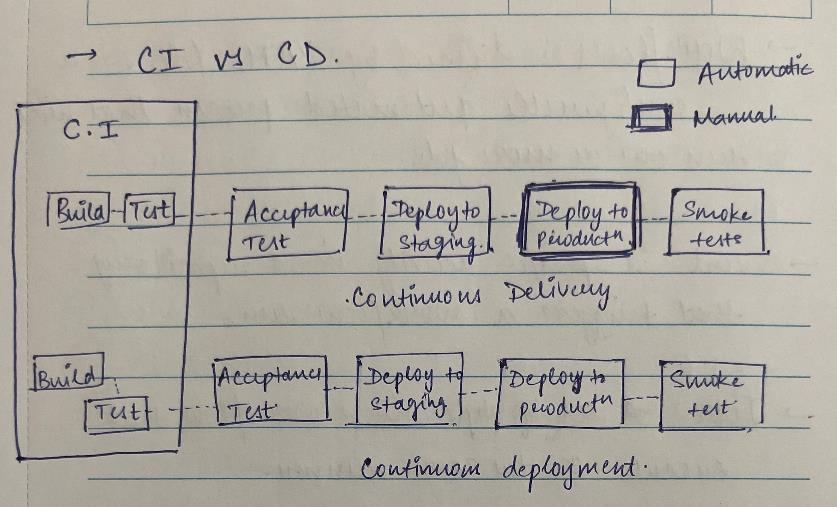 → CI vs CD.
Automatic
Manual.
C.I
Build
Test
Acceptance
Test
Deploy to
Staging.
Deploy to
productn.
Smoke
tests
.Continuous Delivery
Build
Test
Acceptance
Test
Deploy to
staging
Deploy to
productn
Smoke
test
Continuous deployment.